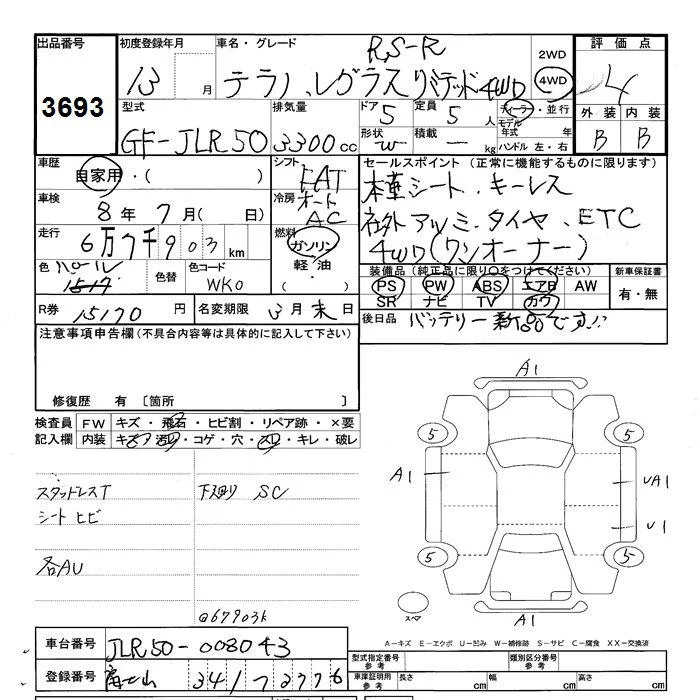 出品番号
3693
初度登録年月
13 月
車名・グレード
RS-R
テラノ、レグラス リミテッド 4WD
2WD
4WD
評価点
4
外装 内装
B B
型式
GF-JLR50
排気量
3300 cc
ドア
5
定員
5 人
形状
W
積載
— kg
ディーラー・並行
モデル
年式 年
ハンドル 左・右
車歴
自家用・( )
シフト
FAT
冷房
オート
AC
車検
8 年 7 月( 日)
走行
6万7千903 km
燃料
ガソリン
軽油
・
色
パール
色替
色コード
WK0
セールスポイント (正常に機能するものに限ります)
本革シート、キーレス
社外アルミ、タイヤ、ETC
4WD(ワンオーナー)
装備品(純正品に限り○をつけてください)
PS PW ABS エアB AW
SR ナビ TV カワ
新車保証書
有・無
R券
15170 円
名変期限
3月末日
後日品
バッテリー新品です!!
注意事項申告欄(不具合内容等は具体的に記入して下さい)
修復歴 有 〔箇所 〕
検査員
記入欄
FW キズ・飛石・ヒビ割・リペア跡・×要
内装 キズ・汚れ・コゲ・穴・スレ・キレ・破レ
スタッドレスT
シートヒビ
各AU
下廻り SC
@67903k
A1
5
5
A1
UA1
U1
5
5
スペア
A1
A-キズ E-エクボ U-凹み W-補修跡 S-サビ C-腐食 XX-交換済
車台番号
JLR50-008043
登録番号
341
型式指定番号
参考
類別区分番号
参考
車庫証明用
参考
長さ cm
幅 cm
高さ cm